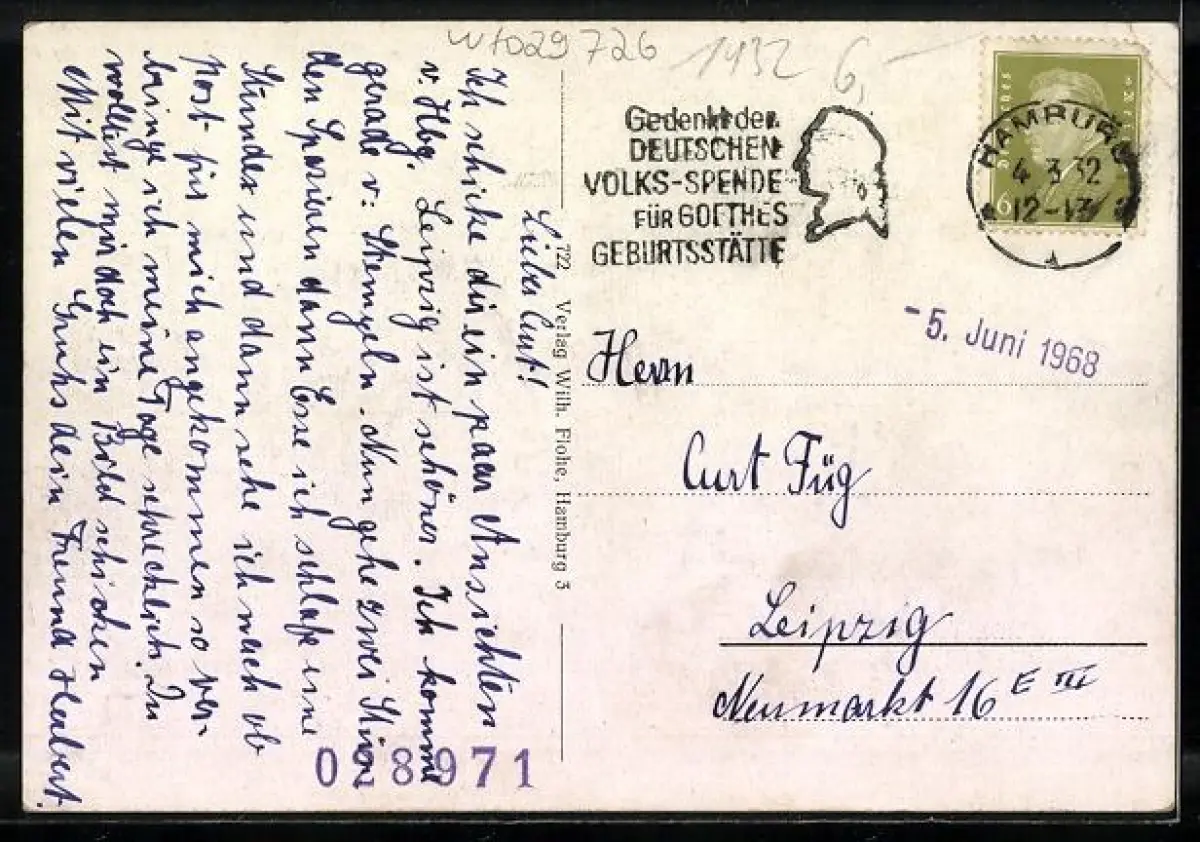 wto29726 1932 6,-
Gedenkt der
DEUTSCHEN
VOLKS-SPENDE
FÜR GOETHES
GEBURTSSTÄTTE
HAMBURG
4.3.32
12-13
6
-5. Juni 1968
Herrn
Curt Füg
Leipzig
Neumarkt 16 E III
722 Verlag Wilh. Flohe, Hamburg 3
Lieber Curt!
Ich schicke dir ein paar Ansichten
v. Hbg. Leipzig ist schöner. Ich komme
gerade v. Stempeln. Nun gehe zwei Stun
den Spazieren dann Esse ich schlafe eine
Stunde und dann sehe ich nach ob
Post für mich angekommen so ver-
bringe ich meine Tage sprichlich. Du
wolltest mir doch ein Bild schicken
Mit vielen Gruhs dein Freund Herbert.
028971